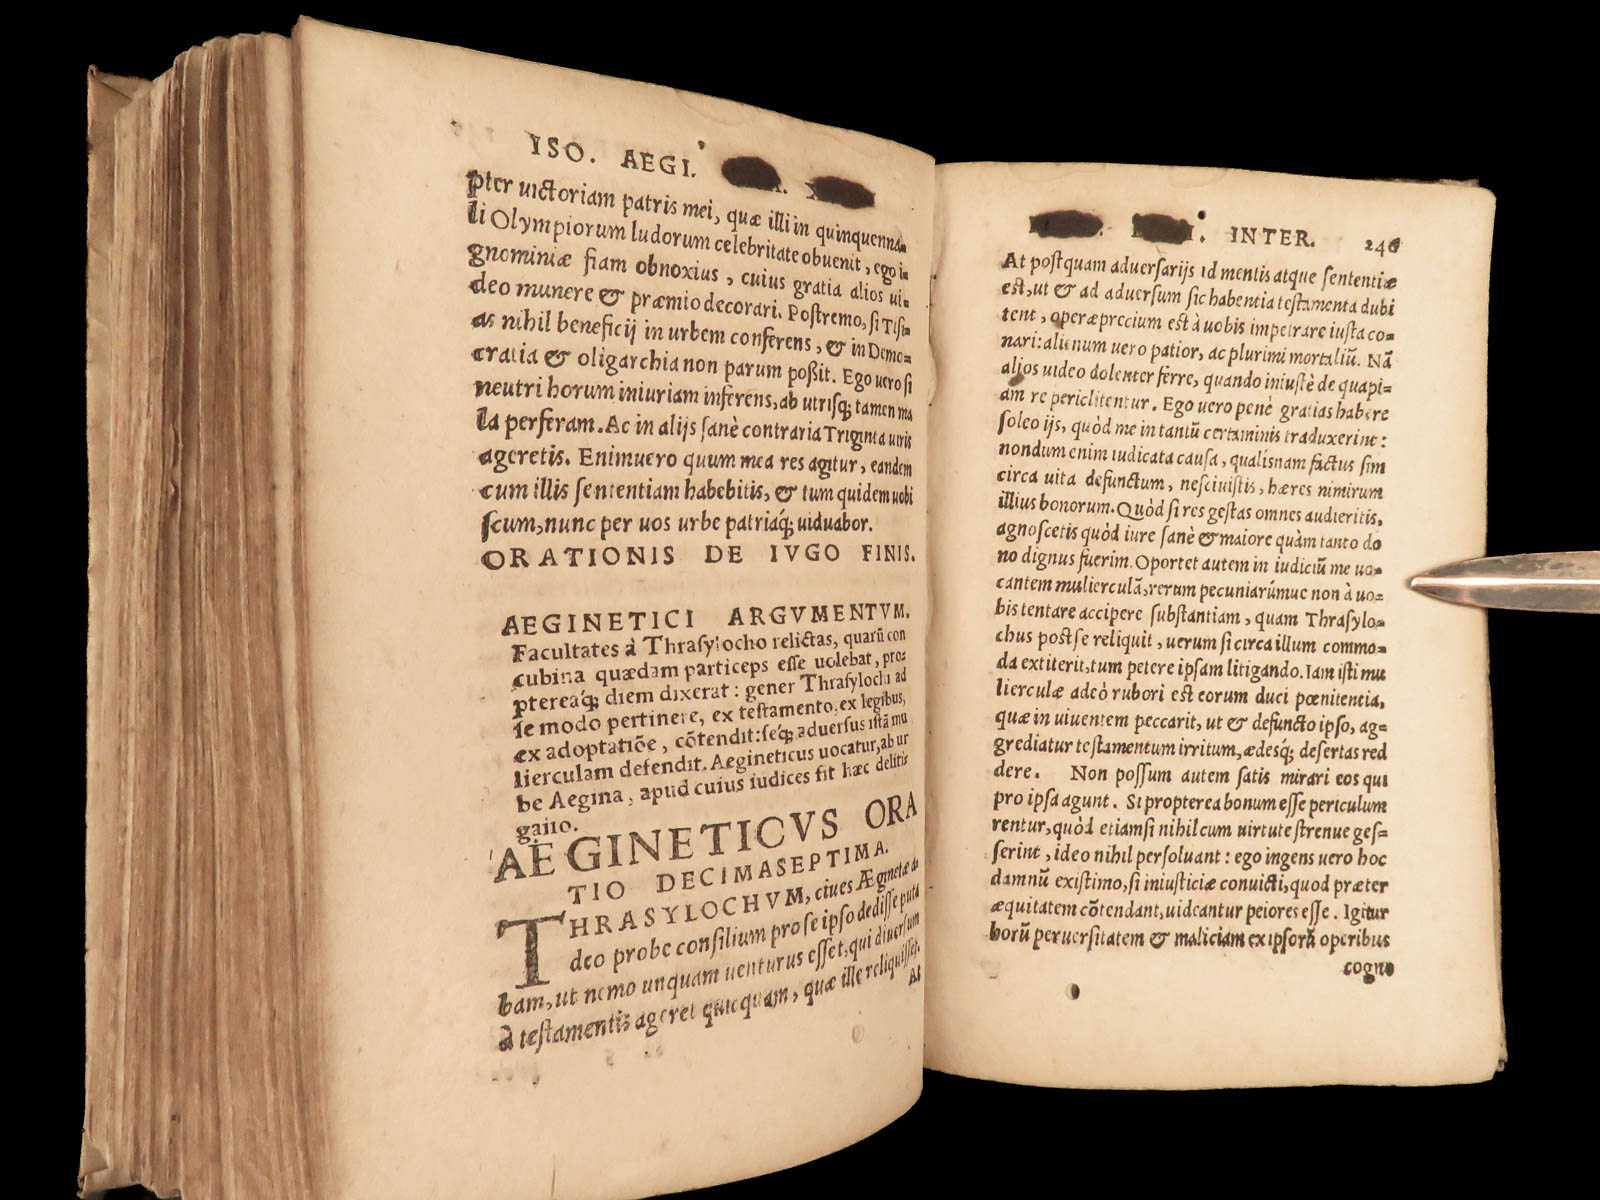 ISO. AEGI.
pter uictoriam patris mei, quæ illi in quinquenna-
li Olympiorum ludorum celebritate obuenit, ego i-
gnominiæ fiam obnoxius, cuius gratia alios ui-
deo munere & præmio decorari. Postremo, si Tisi-
as nihil beneficij in urbem conferens, & in Demo-
cratia & oligarchia non parum poßit. Ego uero si
neutri horum iniuriam inferens, ab utrisq; tamen ma
la perferam. Ac in alijs sanè contraria Triginta uiris
ageretis. Enimuero quum mea res agitur, eandem
cum illis sententiam habebitis, & tum quidem uobi
scum, nunc per uos urbe patriáq; uiduabor.
ORATIONIS DE IVGO FINIS.
AEGINETICI ARGVMENTVM.
Facultates à Thrasylocho relictas, quarū con
cubina quædam particeps esse uolebat, pro-
ptereáq; diem dixerat: gener Thrasylochi ad
se modo pertinere, ex testamento, ex legibus,
ex adoptatiōe, cōtendit: seq; aduersus istā mu
lierculam defendit. Aegineticus uocatur, ab ur
be Aegina, apud cuius iudices fit hæc delitis
gatio.
AEGINETICVS ORA
TIO DECIMASEPTIMA.
THRASYLOCHVM, ciues Æginetæ a
deo probe consilium pro se ipso dedisse puta
bam, ut nemo unquam uenturus esset, qui diuersum
à testamentis ageret quicquam, quæ ille reliquisset.
At
INTER. 246
At postquam aduersarijs id mentis atque sententiæ
est, ut & ad aduersum sic habentia testamenta dubi
tent, operæprecium est à uobis impetrare iusta co-
nari: alienum uero patior, ac plurimi mortaliū. Nā
alios uideo dolenter ferre, quando iniustè de quapi-
am re periclitentur. Ego uero penè gratias habere
soleo ijs, quòd me in tantū certaminis traduxerint:
nondum enim iudicata causa, qualisnam factus sim
circa uita defunctum, nesciuistis, hæres nimirum
illius bonorum. Quòd si res gestas omnes audieritis,
agnoscetis quòd iure sanè & maiore quàm tanto do
no dignus fuerim. Oportet autem in iudiciū me uo-
cantem mulierculā, rerum pecuniarúmue non à uo-
bis tentare accipere substantiam, quam Thrasylo-
chus post se reliquit, uerum si circa illum commo-
da extiterit, tum petere ipsam litigando. Iam isti mu
lierculæ adeò rubori est eorum duci pœnitentia,
quæ in uiuentem peccarit, ut & defuncto ipso, ag-
grediatur testamentum irritum, ædesq; desertas red
dere. Non possum autem satis mirari eos qui
pro ipsa agunt. Si propterea bonum esse periculum
rentur, quòd etiamsi nihil cum uirtute strenue ges-
serint, ideo nihil persoluant: ego ingens uero hoc
damnū existimo, si iniusticiæ conuicti, quod præter
æquitatem cōtendant, uideantur peiores esse. Igitur
horū peruersitatem & maliciam ex ipsorū operibus
cogno